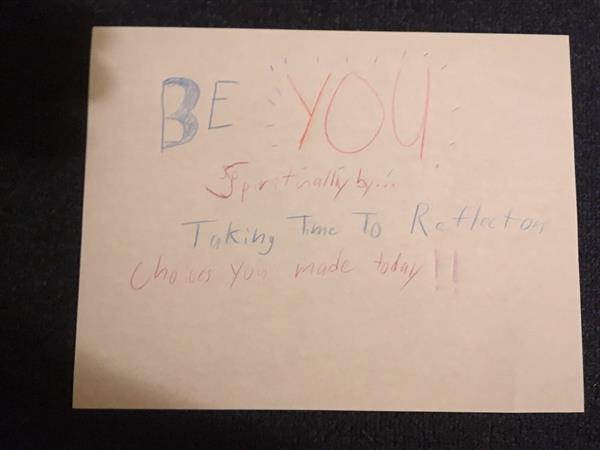 BE YOU
Spiritually by...
Taking Time To Reflect on
Choices you made today!!